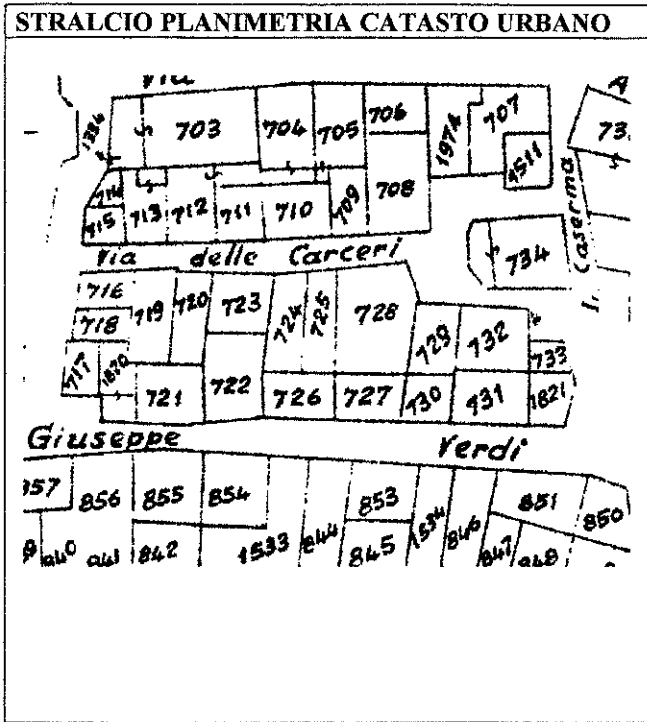 STRALCIO PLANIMETRIA CATASTO URBANO
Via
1336 703 704 705 706 1974 707 1511 73
714 715 713 712 711 710 709 708
Via delle Carceri
734
Caserma
716 718 719 720 723 724 725 728 729 732 733
717 1820 721 722 726 727 730 731 1821
Giuseppe Verdi
857 856 855 854 853 1534 846 851 850
840 841 842 1533 844 845 847 848